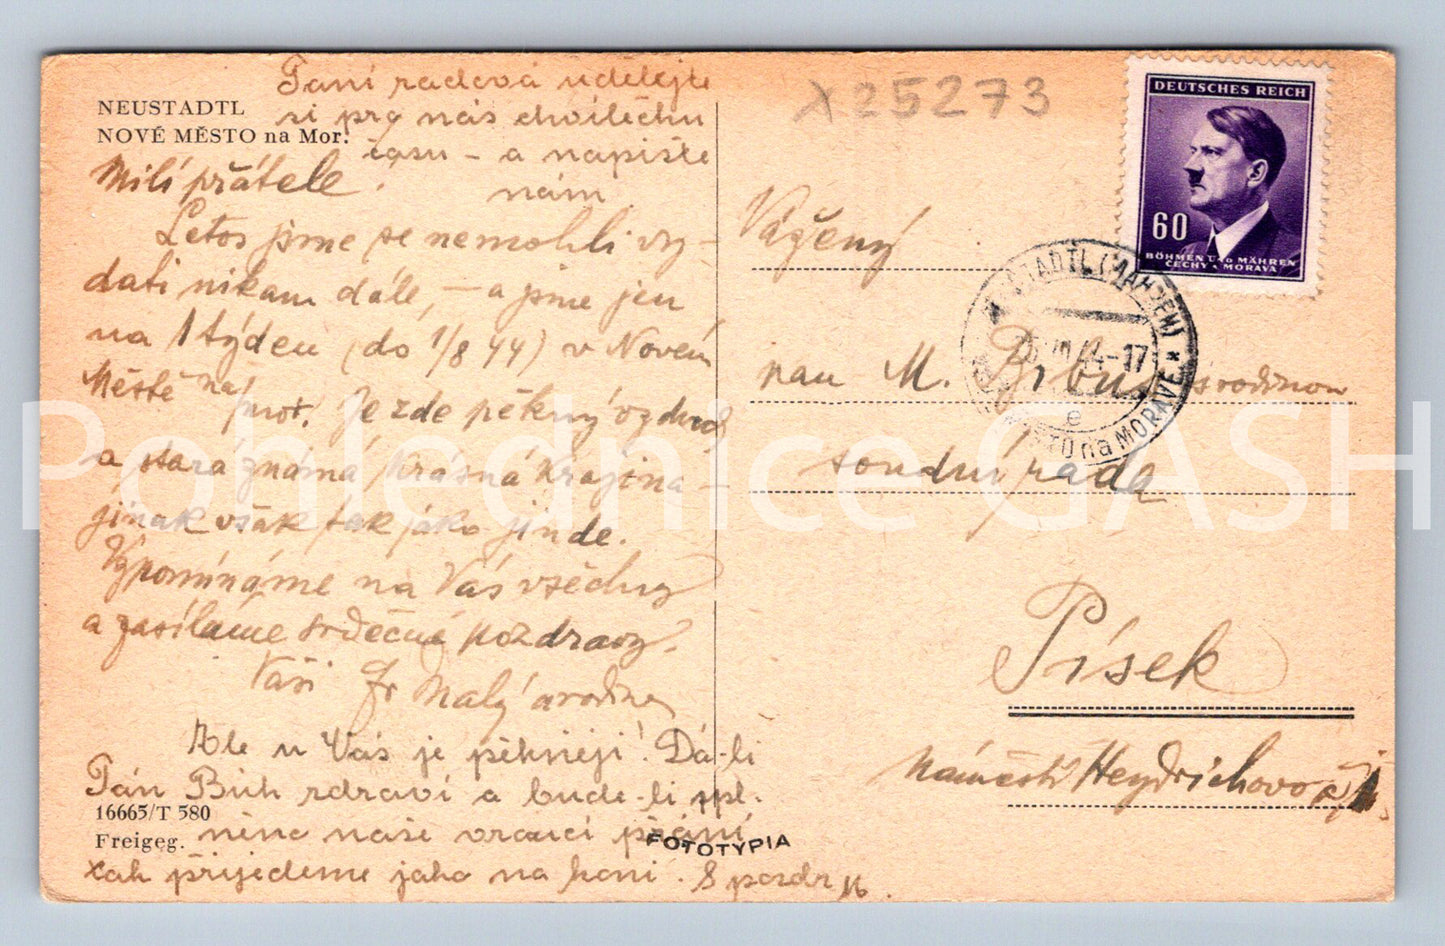 NEUSTADTL
NOVÉ MĚSTO na Mor.
Paní radová udělejte
si pro nás chvilečku
času – a napište
nám
Milí přátelé.
Letos jsme se nemohli vy-
dati nikam dále – a jsme jen
na 1 týden (do 1/8 44) v Novém
Městě na Mor. Je zde pěkný vzduch
a stará známá krásná krajina –
jinak však tak jako jinde.
Vzpomínáme na Vás všechny
a zasíláme srdečné pozdravy.
Vaši Fr Malý a rodina
Ale u Vás je pěkněji! Dá-li
Pán Bůh zdraví a bude-li spl-
něno naše vroucí přání
tak přijedeme jako na koni. S pozdr M.
16665/T 580
Freigeg.
FOTOTYPIA
X25273
DEUTSCHES REICH
60
BÖHMEN UND MÄHREN
ČECHY A MORAVA
NEUSTADTL (MÄHREN)
44-17
e
MĚSTO na MORAVĚ
Vážený
pan M. s rodinou
soudní rada
Písek
náměstí Heydrichovo
Pohlednice GASH